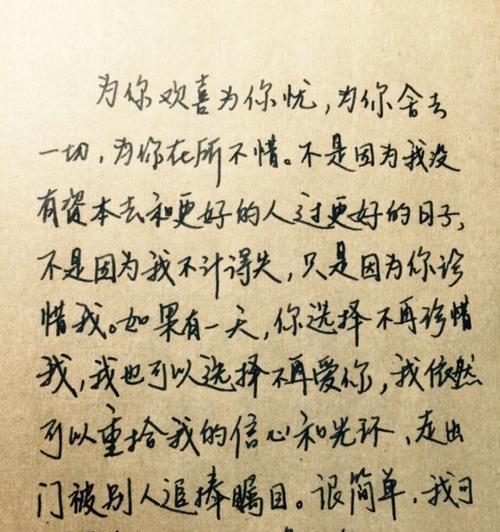 为你欢喜为你忧，为你舍去
一切，为你在所不惜。不是因为我没
有资本去和更好的人过更好的日子，
不是因为我不计得失，只是因为你珍
惜我。如果有一天，你选择不再珍惜
我，我也可以选择不再爱你，我依然
可以重拾我的信心和光环，走出
门被别人追捧瞩目。很简单，我可